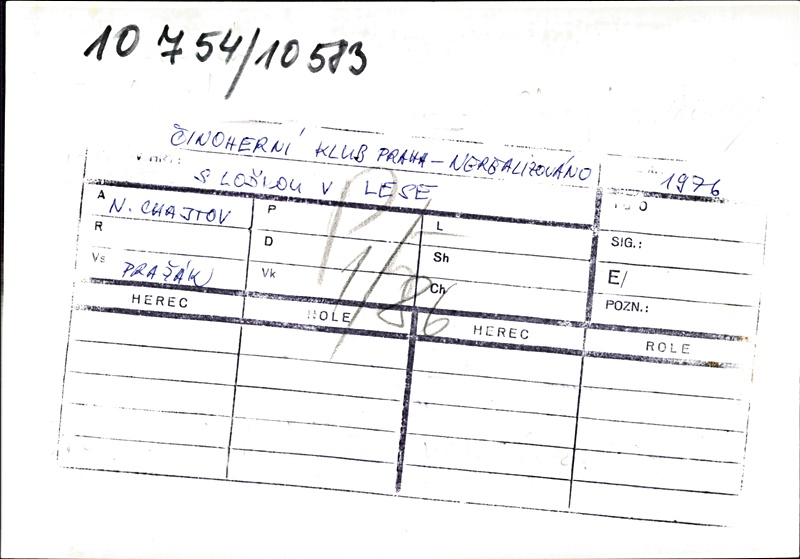 10 754/10 583
ČINOHERNÍ KLUB PRAHA – NEREALIZOVÁNO
1976
S LOŽIOU V LESE
A N. CHAJTOV P L
R D Sh SIG.:
Vs PRAŽÁK Vk Ch E/
POZN.:
P 1/86
HEREC ROLE HEREC ROLE